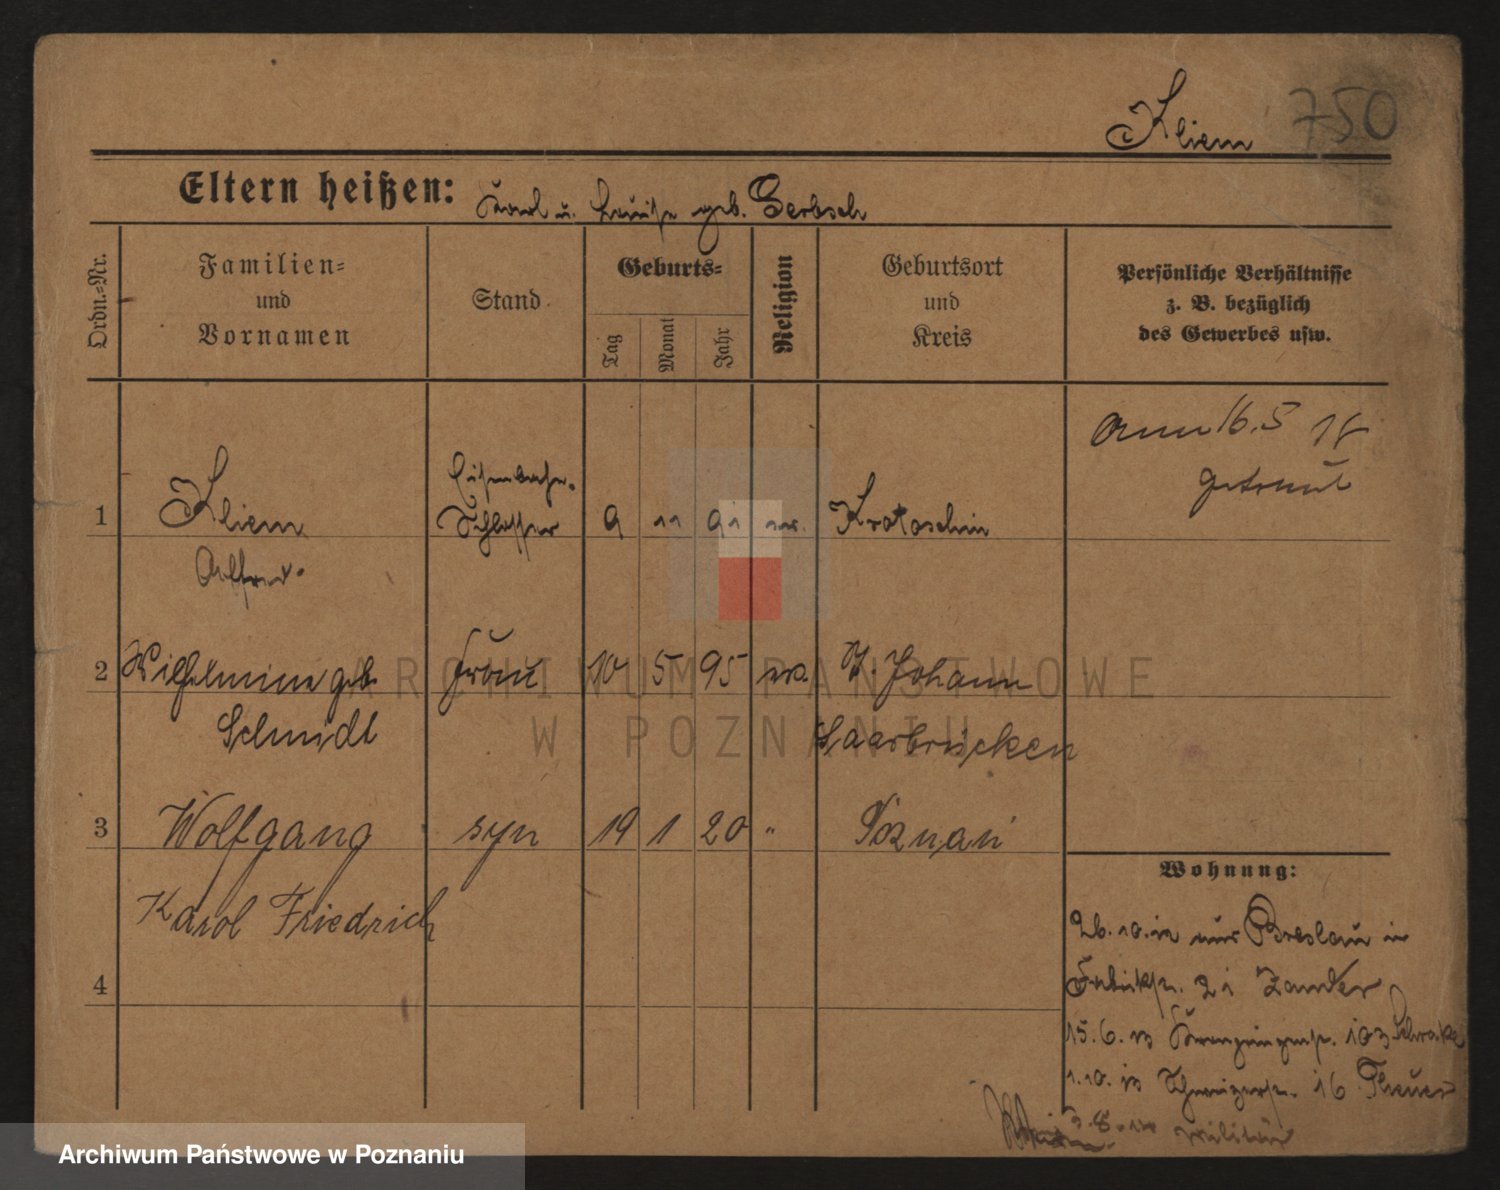 Kliem 750
Eltern heißen: Karl u. Luise geb. Gerbsch
Ordn.-Nr.
Familien-
und
Vornamen
Stand
Geburts-
Tag
Monat
Jahr
Religion
Geburtsort
und
Kreis
Persönliche Verhältnisse
z. B. bezüglich
des Gewerbes usw.
16.5 18
getraut
1 Kliem Eisenbahn-
Schlosser 9 11 91 ev. Krotoschin
Alfred
2 Wilhelmine geb. Frau 10 5 95 ev. St. Johann
Schmidt Saarbrücken
3 Wolfgang syn 19 1 20 " Poznań
Karol Friedrich
4
Wohnung:
26.10. aus Breslau in
Fabrikstr. 21 Zander
15.6. Kronprinzenstr. 103
1.10. 16 Theuer
3.8. Militär
ARCHIWUM PAŃSTWOWE
W POZNANIU
Archiwum Państwowe w Poznaniu